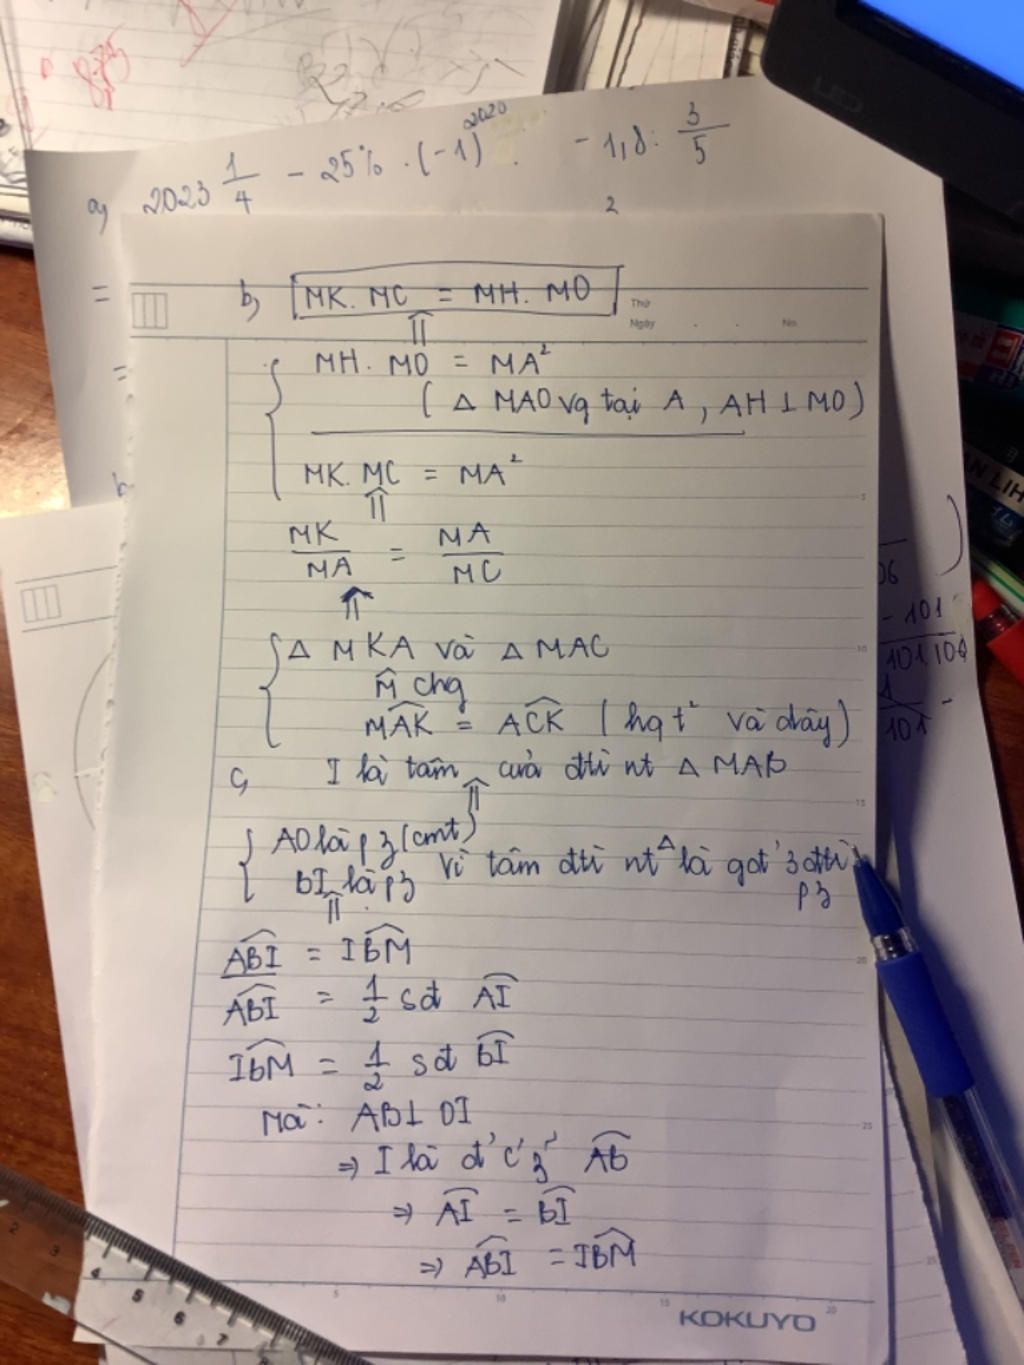 a) 2023 1/4 - 25% . (-1)^2020 . - 1,8 : 3/5
2
=
b) MK. MC = MH. MO
Thứ
Ngày . . No.
⇑
MH. MO = MA²
( Δ MAO vg tại A, AH ⊥ MO)
MK. MC = MA²
⇑
MK/MA = MA/MC
⇑
Δ MKA và Δ MAC
M̂ chg
MAK = ACK ( hq t² và dây)
c, I là tâm của đtì nt Δ MAB
⇑
AO là pɜ (cmt)
BI là pɜ Vì tâm đtì nt Δ là gđ 3 đtì pɜ
⇑
ABI = IBM
ABI = 1/2 sđ AI
IBM = 1/2 sđ BI
Mà: AB ⊥ OI
⇒ I là đ' c' ɜ' AB
⇒ AI = BI
⇒ ABI = IBM
KOKUYO
06
- 101
101.100
1
101
AN LIH
5
10
15
20
25
5 10 15 20
2 3 4 5 6 7